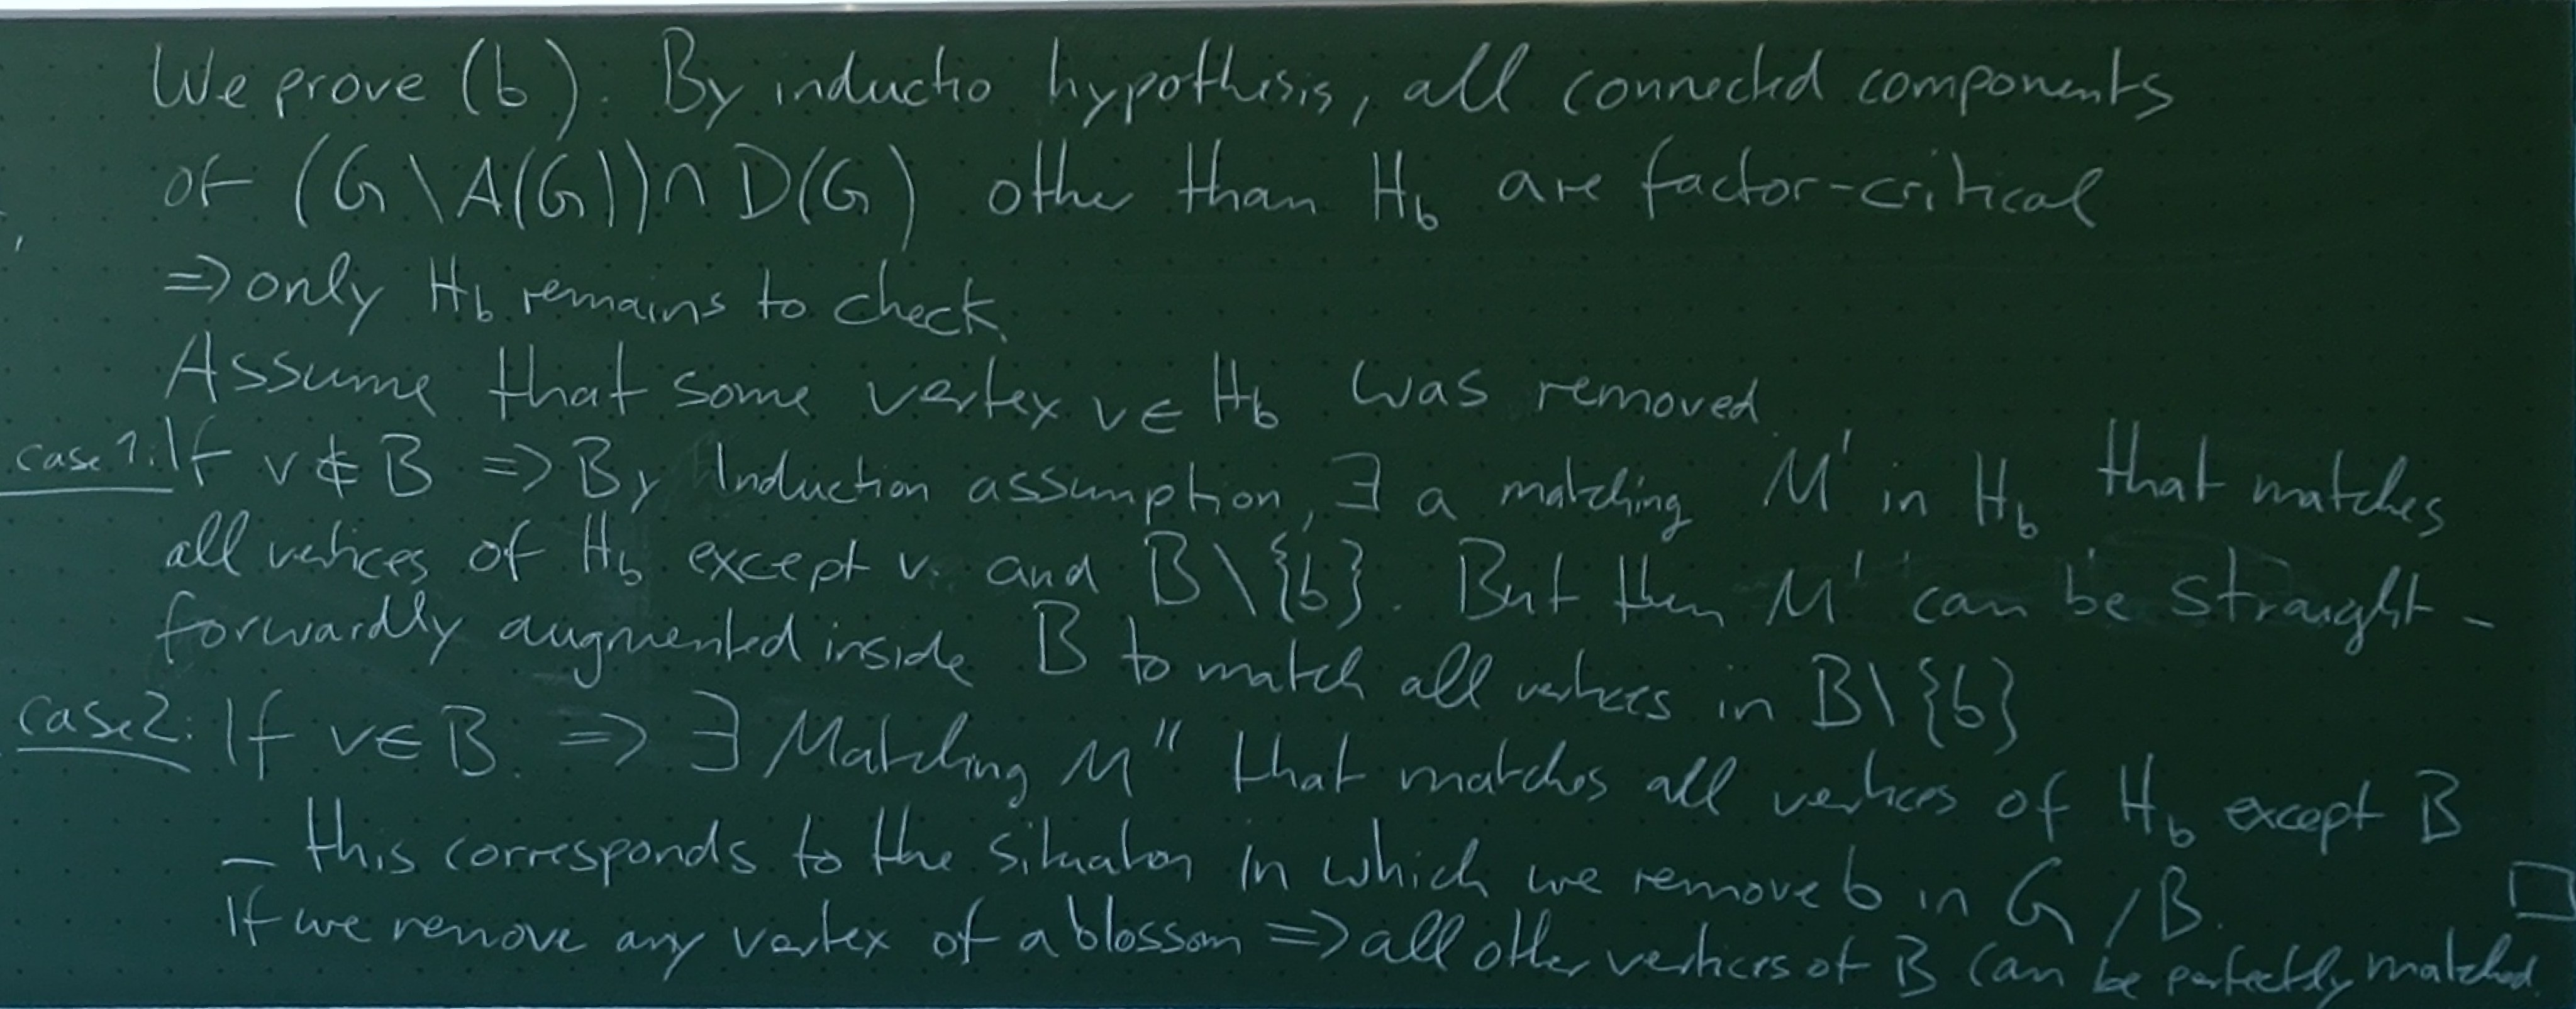 We prove (b). By inductio hypothesis, all connected components
of (G \ A(G)) ∩ D(G) other than H_b are factor-critical
=> only H_b remains to check.
Assume that some vertex v ∈ H_b was removed.
case 1: If v ∉ B => By Induction assumption, ∃ a matching M' in H_b that matches
all vertices of H_b except v and B \ {b}. But then M' can be straight-
forwardly augmented inside B to match all vertices in B \ {b}
case 2: If v ∈ B => ∃ Matching M'' that matches all vertices of H_b except B
– this corresponds to the situation in which we remove b in G / B. □
If we remove any vertex of a blossom => all other vertices of B can be perfectly matched.